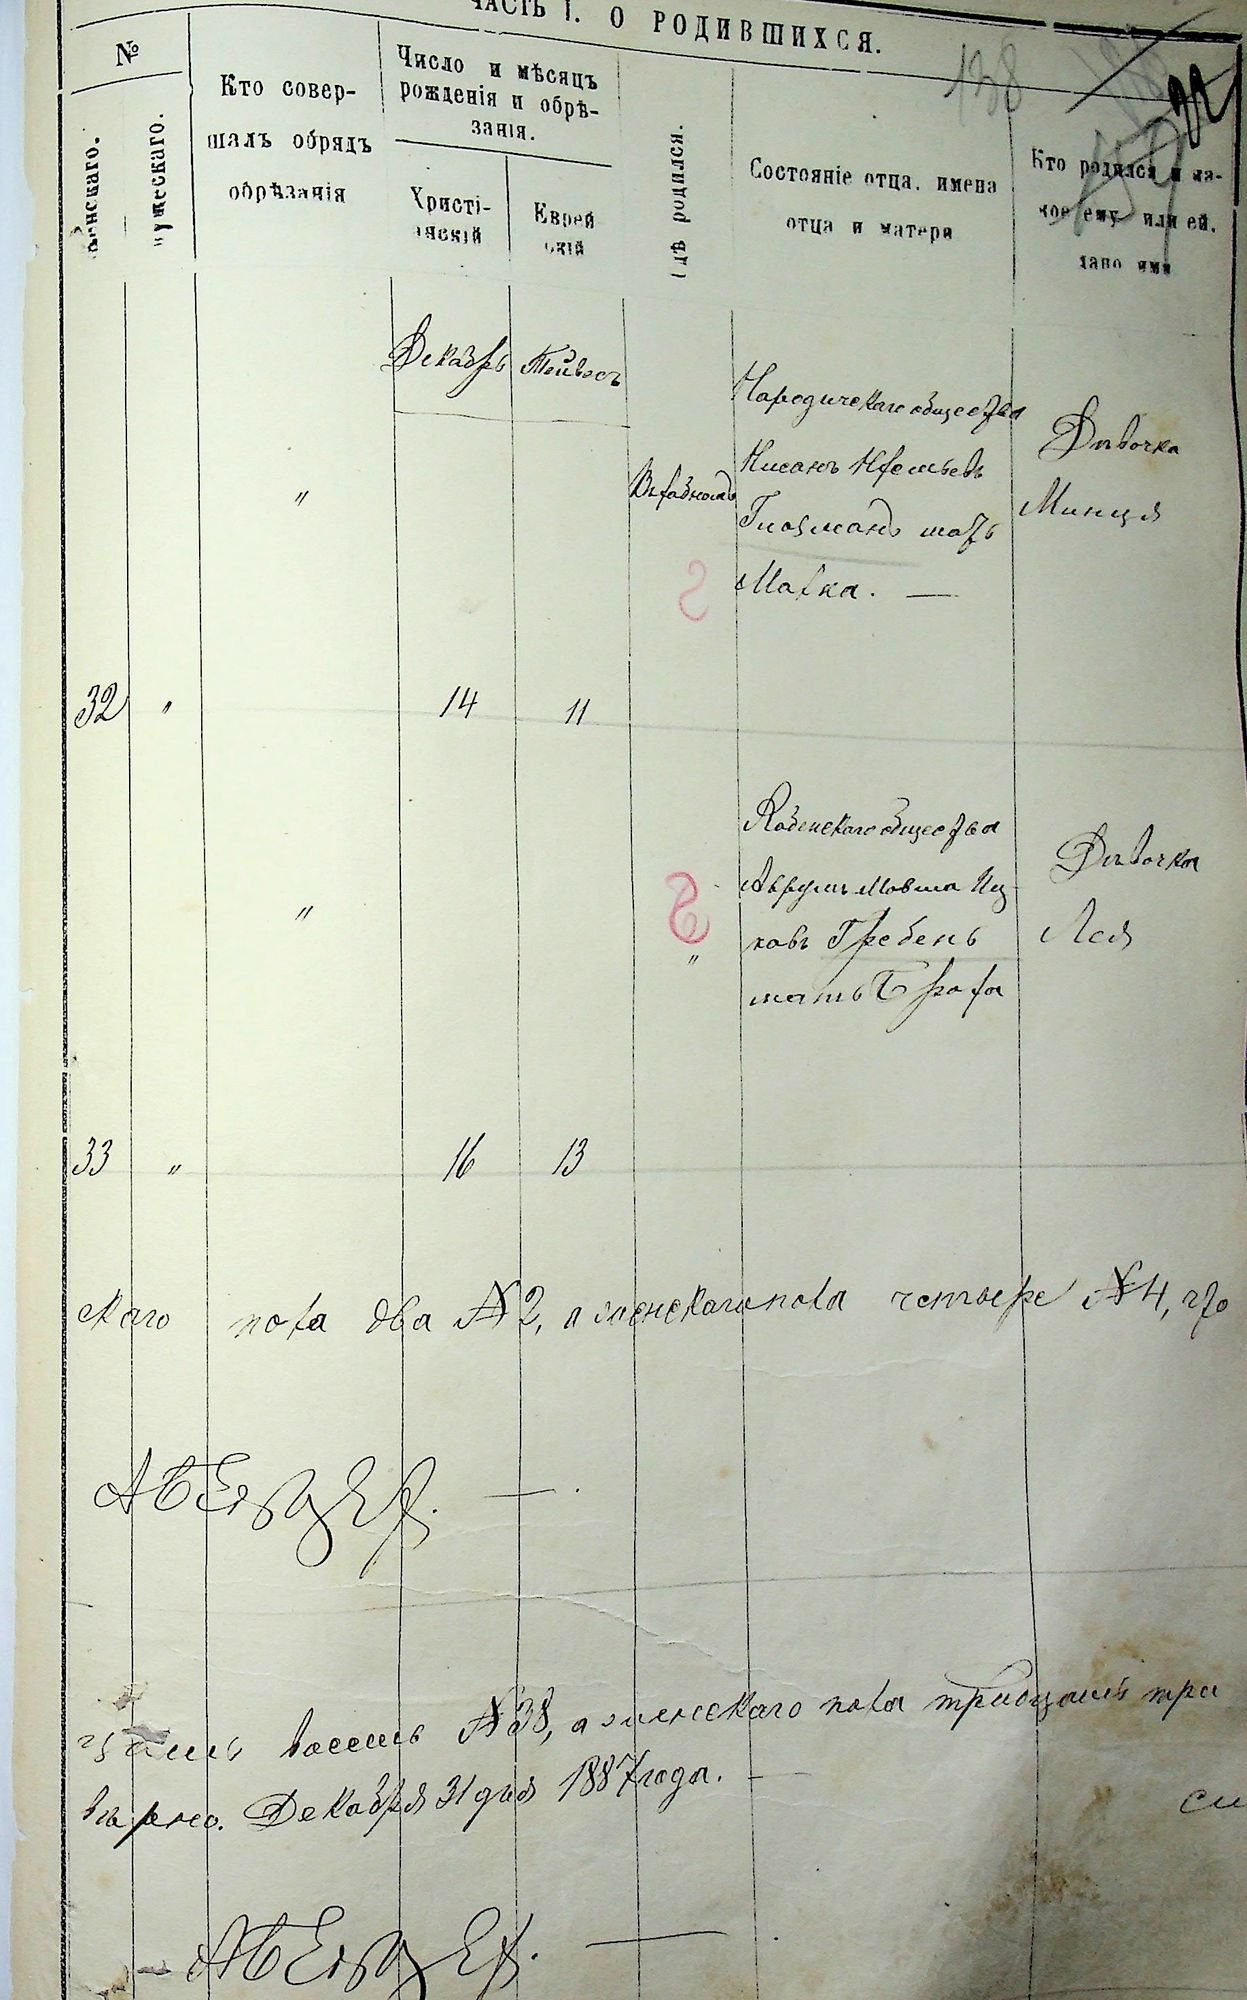 ЧАСТЬ I. О РОДИВШИХСЯ.
138
№
Женскаго.
Мужескаго.
Кто совер-
шалъ обрядъ
обрѣзанія
Число и мѣсяцъ
рожденія и обрѣ-
занія.
Христі-
анскій
Еврей
скій
Гдѣ родился.
Состояніе отца, имена
отца и матери
Кто родился и ка-
кое ему или ей,
дано имя
Декабрь
Тейвесъ
"
Народическаго общества
Нисанъ
мать
Малка. —
Дѣвочка
Минця
32
"
14
11
"
"
общества
Аврумъ Мовша Иц
ковъ Гребень
мать
Дѣвочка
Лея
33
"
16
13
скаго пола два № 2, а женскаго пола четыре № 4, что
цать восемь № 38, а женскаго пола тридцать три
вѣрно. Декабря 31 дня 1887 года. —